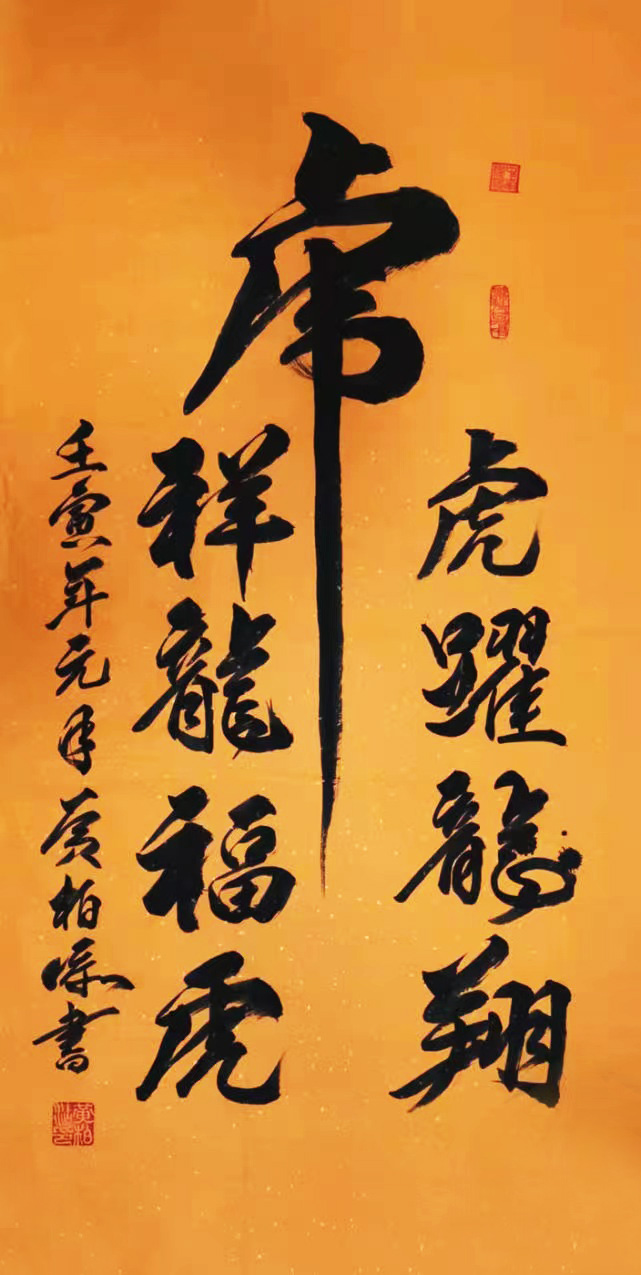 虎
虎躍龍翔
祥龍福虎
壬寅年元月黄柏 書